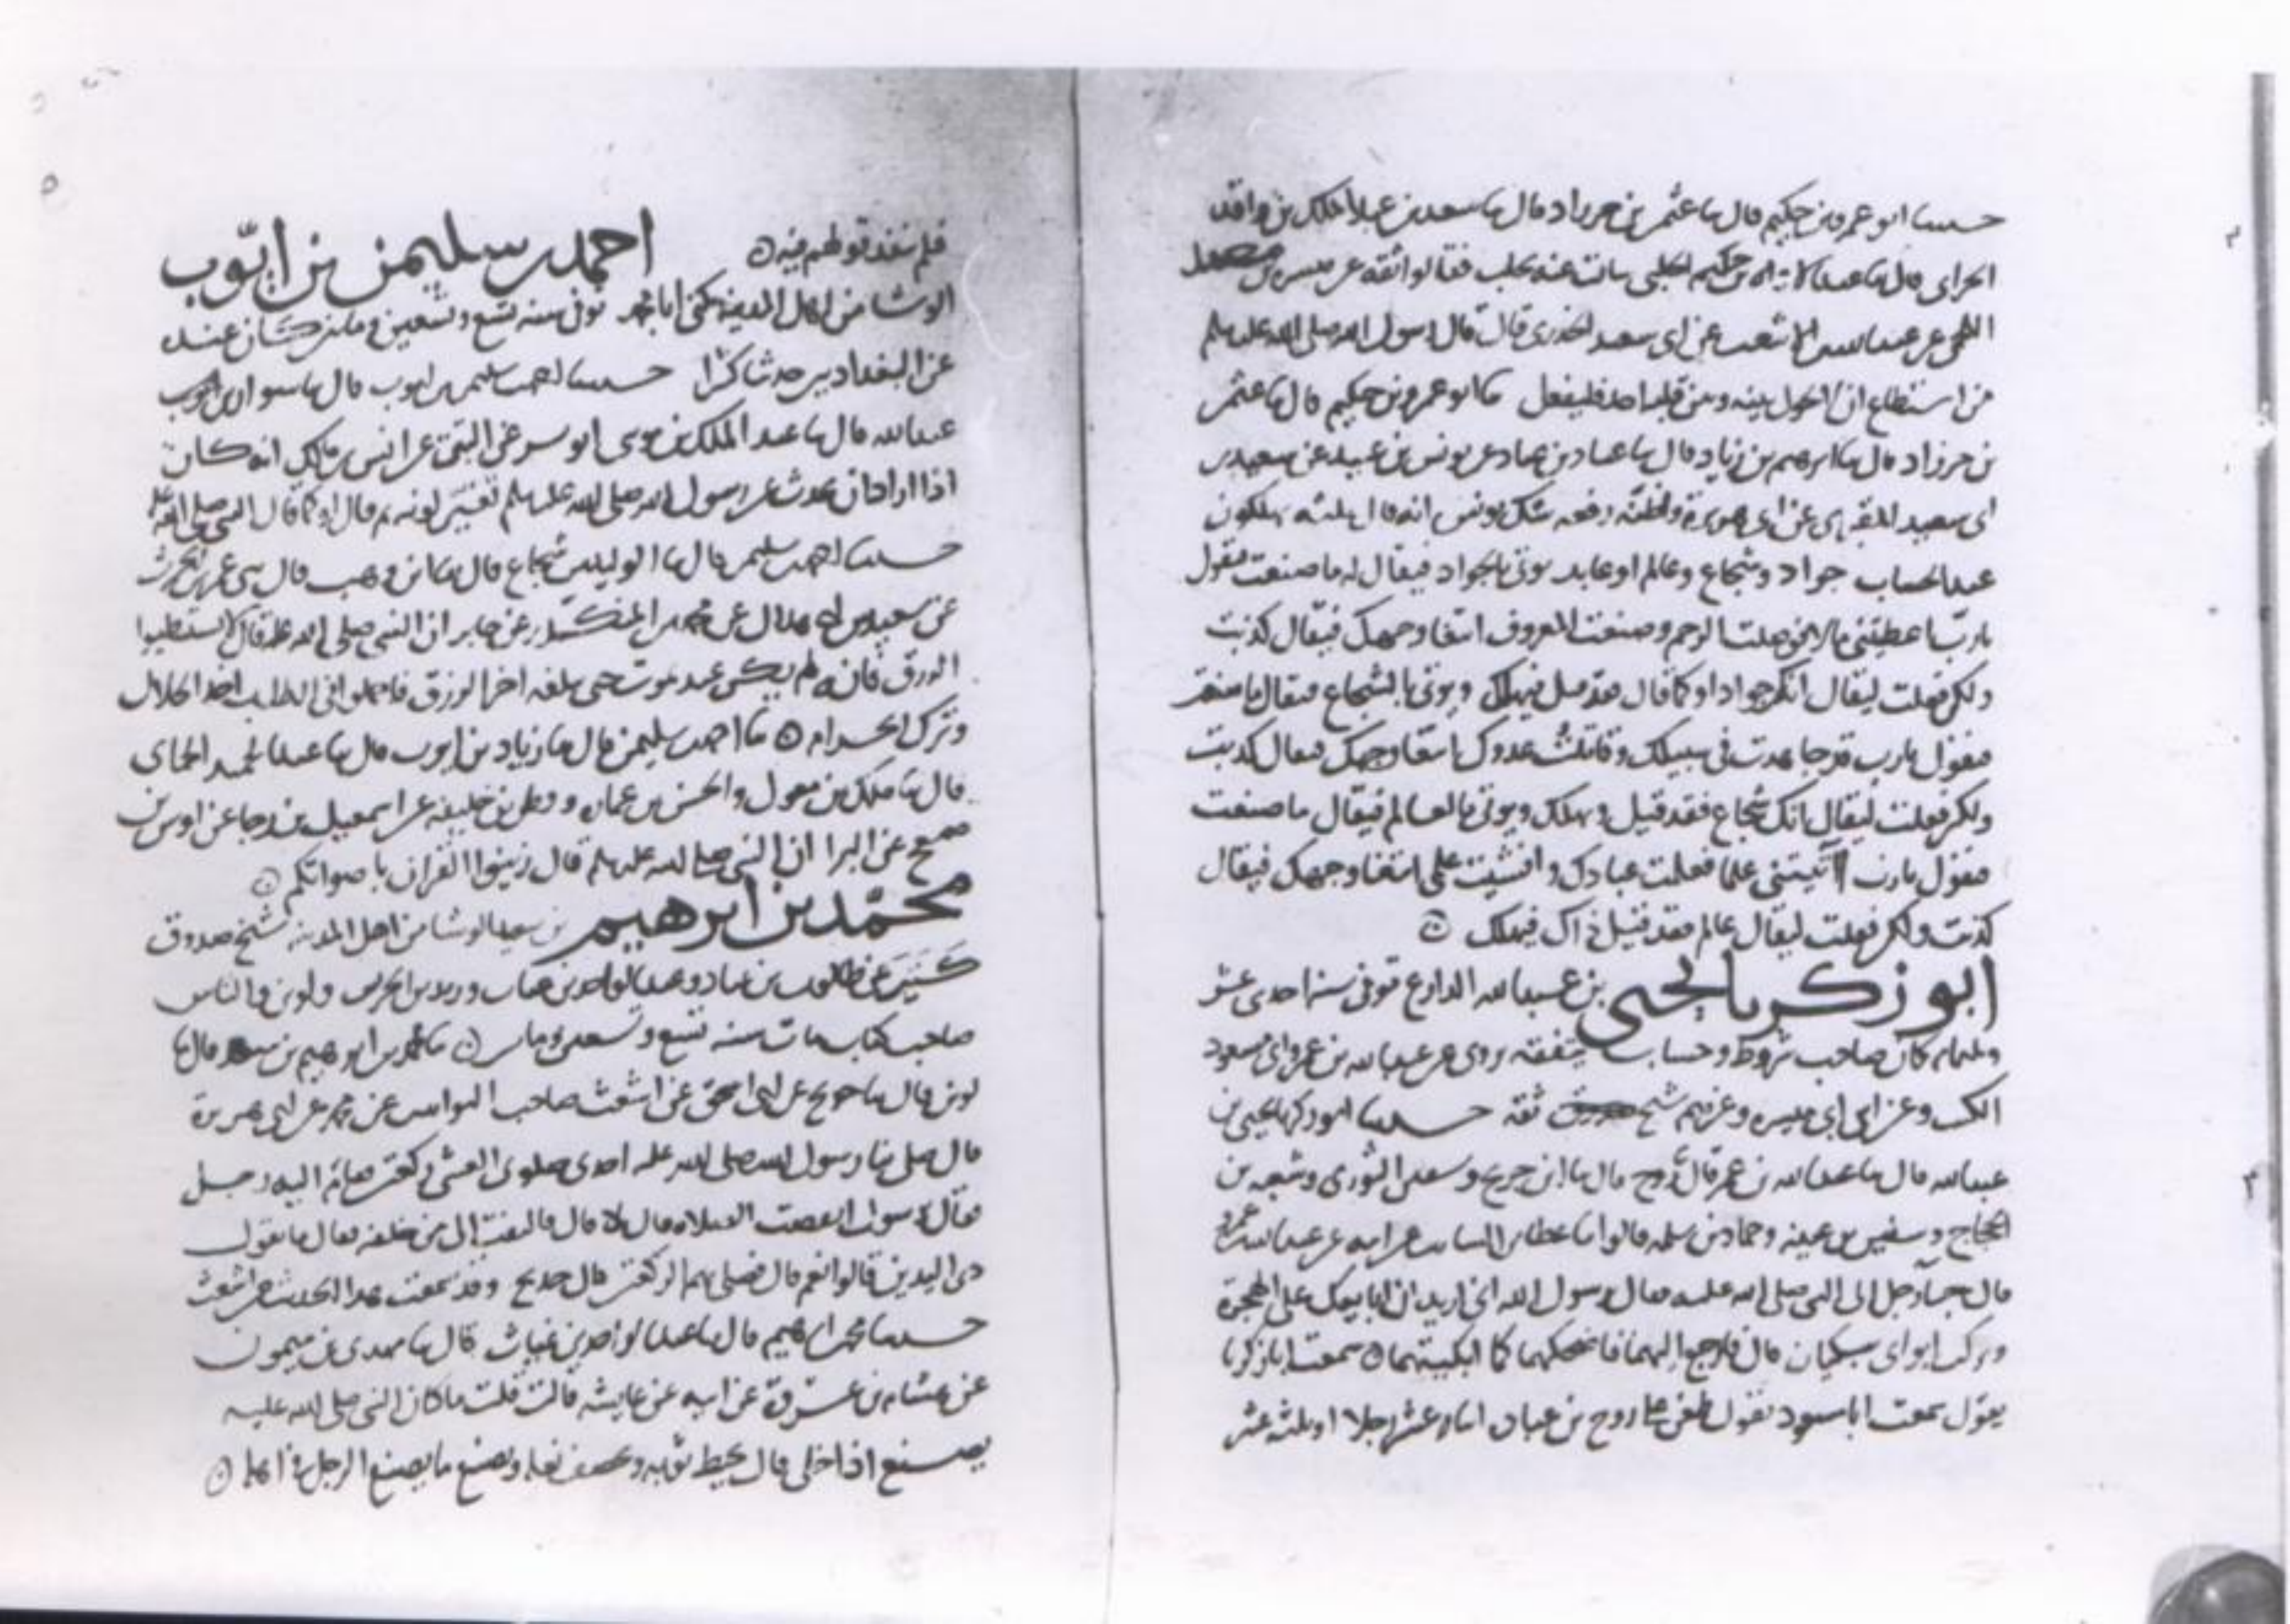 حدثنا ابو عمرو بن حكيم قال ثنا عثمن بن خرزاد قال ثنا سعيد بن عبد الملك بن واقد
الحراني قال ثنا عبد الله بن حكيم الحلبي سالت عنه بحلب فقالوا ثقة عن ميسره بن معبد
اللخمي عن عبد الله بن الاشعث عن ابي سعيد الخدري قال قال رسول الله صلى الله عليه وسلم
من استطاع ان لا يحول بينه وبين قبلته احد فليفعل ثنا ابو عمرو بن حكيم قال ثنا عثمن
بن خرزاد قال ثنا ابرهيم بن زياد قال ثنا عباد بن عباد عن يونس بن عبيد عن سعيد بن
ابي سعيد المقبري عن ابي هريرة واظنه رفعه شك يونس انه قال ثلثه يهلكون
عند الحساب جواد وشجاع وعالم او عابد يوتى بالجواد فيقال له ما صنعت فيقول
يا رب اعطيتني مالا فوصلت الرحم وصنعت المعروف ابتغا وجهك فيقال كذبت
ولكن فعلت ليقال انك جواد او كما قال فقد قيل فيهلك ويوتى بالشجاع فيقال ما صنعت
فيقول يا رب قد جاهدت في سبيلك وقاتلت عدوك ابتغا وجهك فيقال كذبت
ولكن فعلت ليقال انك شجاع فقد قيل ويهلك ويوتى بالعالم فيقال ما صنعت
فيقول يا رب آتيتني علما فعلمت عبادك وافشيت علمي ابتغا وجهك فيقال
كذبت ولكن فعلت ليقال عالم فقد قيل ذاك فيهلك
ابو زكريا يحيى بن عبد الله الدارع توفي سنة احدى عشر
وثلثمايه كان صاحب شروط وحساب يتفقه يروي عن عبد الله بن عمر وابي مسعود
وغيرهم شيخ ثقة حدثنا ابو زكريا يحيى بن
عبد الله قال ثنا عبد الله بن عمر قال ثنا روح قال ثنا ابن جريج وسفين الثوري وشعبه بن
الحجاج وسفين بن عيينه وحماد بن سلمه قالوا ثنا عطا بن السائب عن ابيه عن عبد الله بن عمرو
قال جا رجل الى النبي صلى الله عليه فقال يرسول الله اني اريد ان ابايعك على الهجرة
وتركت ابواي يبكيان قال فارجع اليهما فاضحكهما كما ابكيتهما سمعت ابا زكريا
يقول سمعت ابا مسعود يقول طعن على روح بن عباده اثنا عشر رجلا او ثلثه عشر
فلم ينفذ قولهم فيه
احمد بن سليمن بن ايوب
الوشا من اهل المدينه يكنى ابا محمد توفي سنه تسع وتسعين ومايتين كان عنده
عن البغداديين حديثا كثيرا حدثنا احمد بن سليمن بن ايوب قال ثنا سوار بن
عبد الله قال ثنا عبد الملك بن موسى ابو بشر عن التيمي عن انس بن مالك انه كان
اذا اراد ان يحدث عن رسول الله صلى الله عليه وسلم تغير لونه ثم قال او كما قال النبي صلى الله عليه
حدثنا احمد بن سليمن قال ثنا الوليد بن شجاع قال ثنا ابن وهب قال ثني عمرو بن الحرث
عن سعيد بن ابي هلال عن محمد بن المنكدر عن جابر ان النبي صلى الله عليه قال لا تستبطئوا
الرزق فانه لم يكن عبد يموت حتى يبلغه اخر الرزق فاجملوا في الطلب اخذ الحلال
وترك الحرام ثنا احمد بن سليمن قال ثنا زياد بن ايوب قال ثنا عبد الحميد الحماني
قال ثنا ملك بن مغول والحسن بن عماره وفطر بن خليفه عن اسمعيل بن رجا عن اوس بن
ضمعج عن البرا ان النبي صلى الله عليه وسلم قال زينوا القران باصواتكم
محمد بن ابرهيم بن سعيد الوشا من اهل المدينه شيخ صدوق
كتب عن طالوت بن عباد وعبد الواحد بن غياث ولوين والناس
صاحب كتاب مات سنه تسع وتسعين ومايتين ثنا محمد بن ابرهيم بن سعيد قال ثنا
لوين قال ثنا حديج عن ابي اسحق عن اشعث صاحب التوابيت عن محمد عن ابي هريرة
قال صلى بنا رسول الله صلى الله عليه احدى صلوتي العشي ركعتين فقام اليه رجل
فقال يرسول الله انقصت الصلاه قال لا قال فالتفت الى من خلفه فقال ما يقول
ذي اليدين قالوا نعم قال فصلى بهم الركعتين قال حديج وقد سمعت هذا الحديث من اشعث
حدثنا محمد بن ابرهيم قال ثنا عبد الواحد بن غياث قال ثنا مهدي بن ميمون
عن هشام بن عروة عن ابيه عن عايشه قالت قلت ما كان النبي صلى الله عليه
يصنع اذا خلى قال يخيط ثوبه ويخصف نعله ويصنع ما يصنع الرجل في اهله